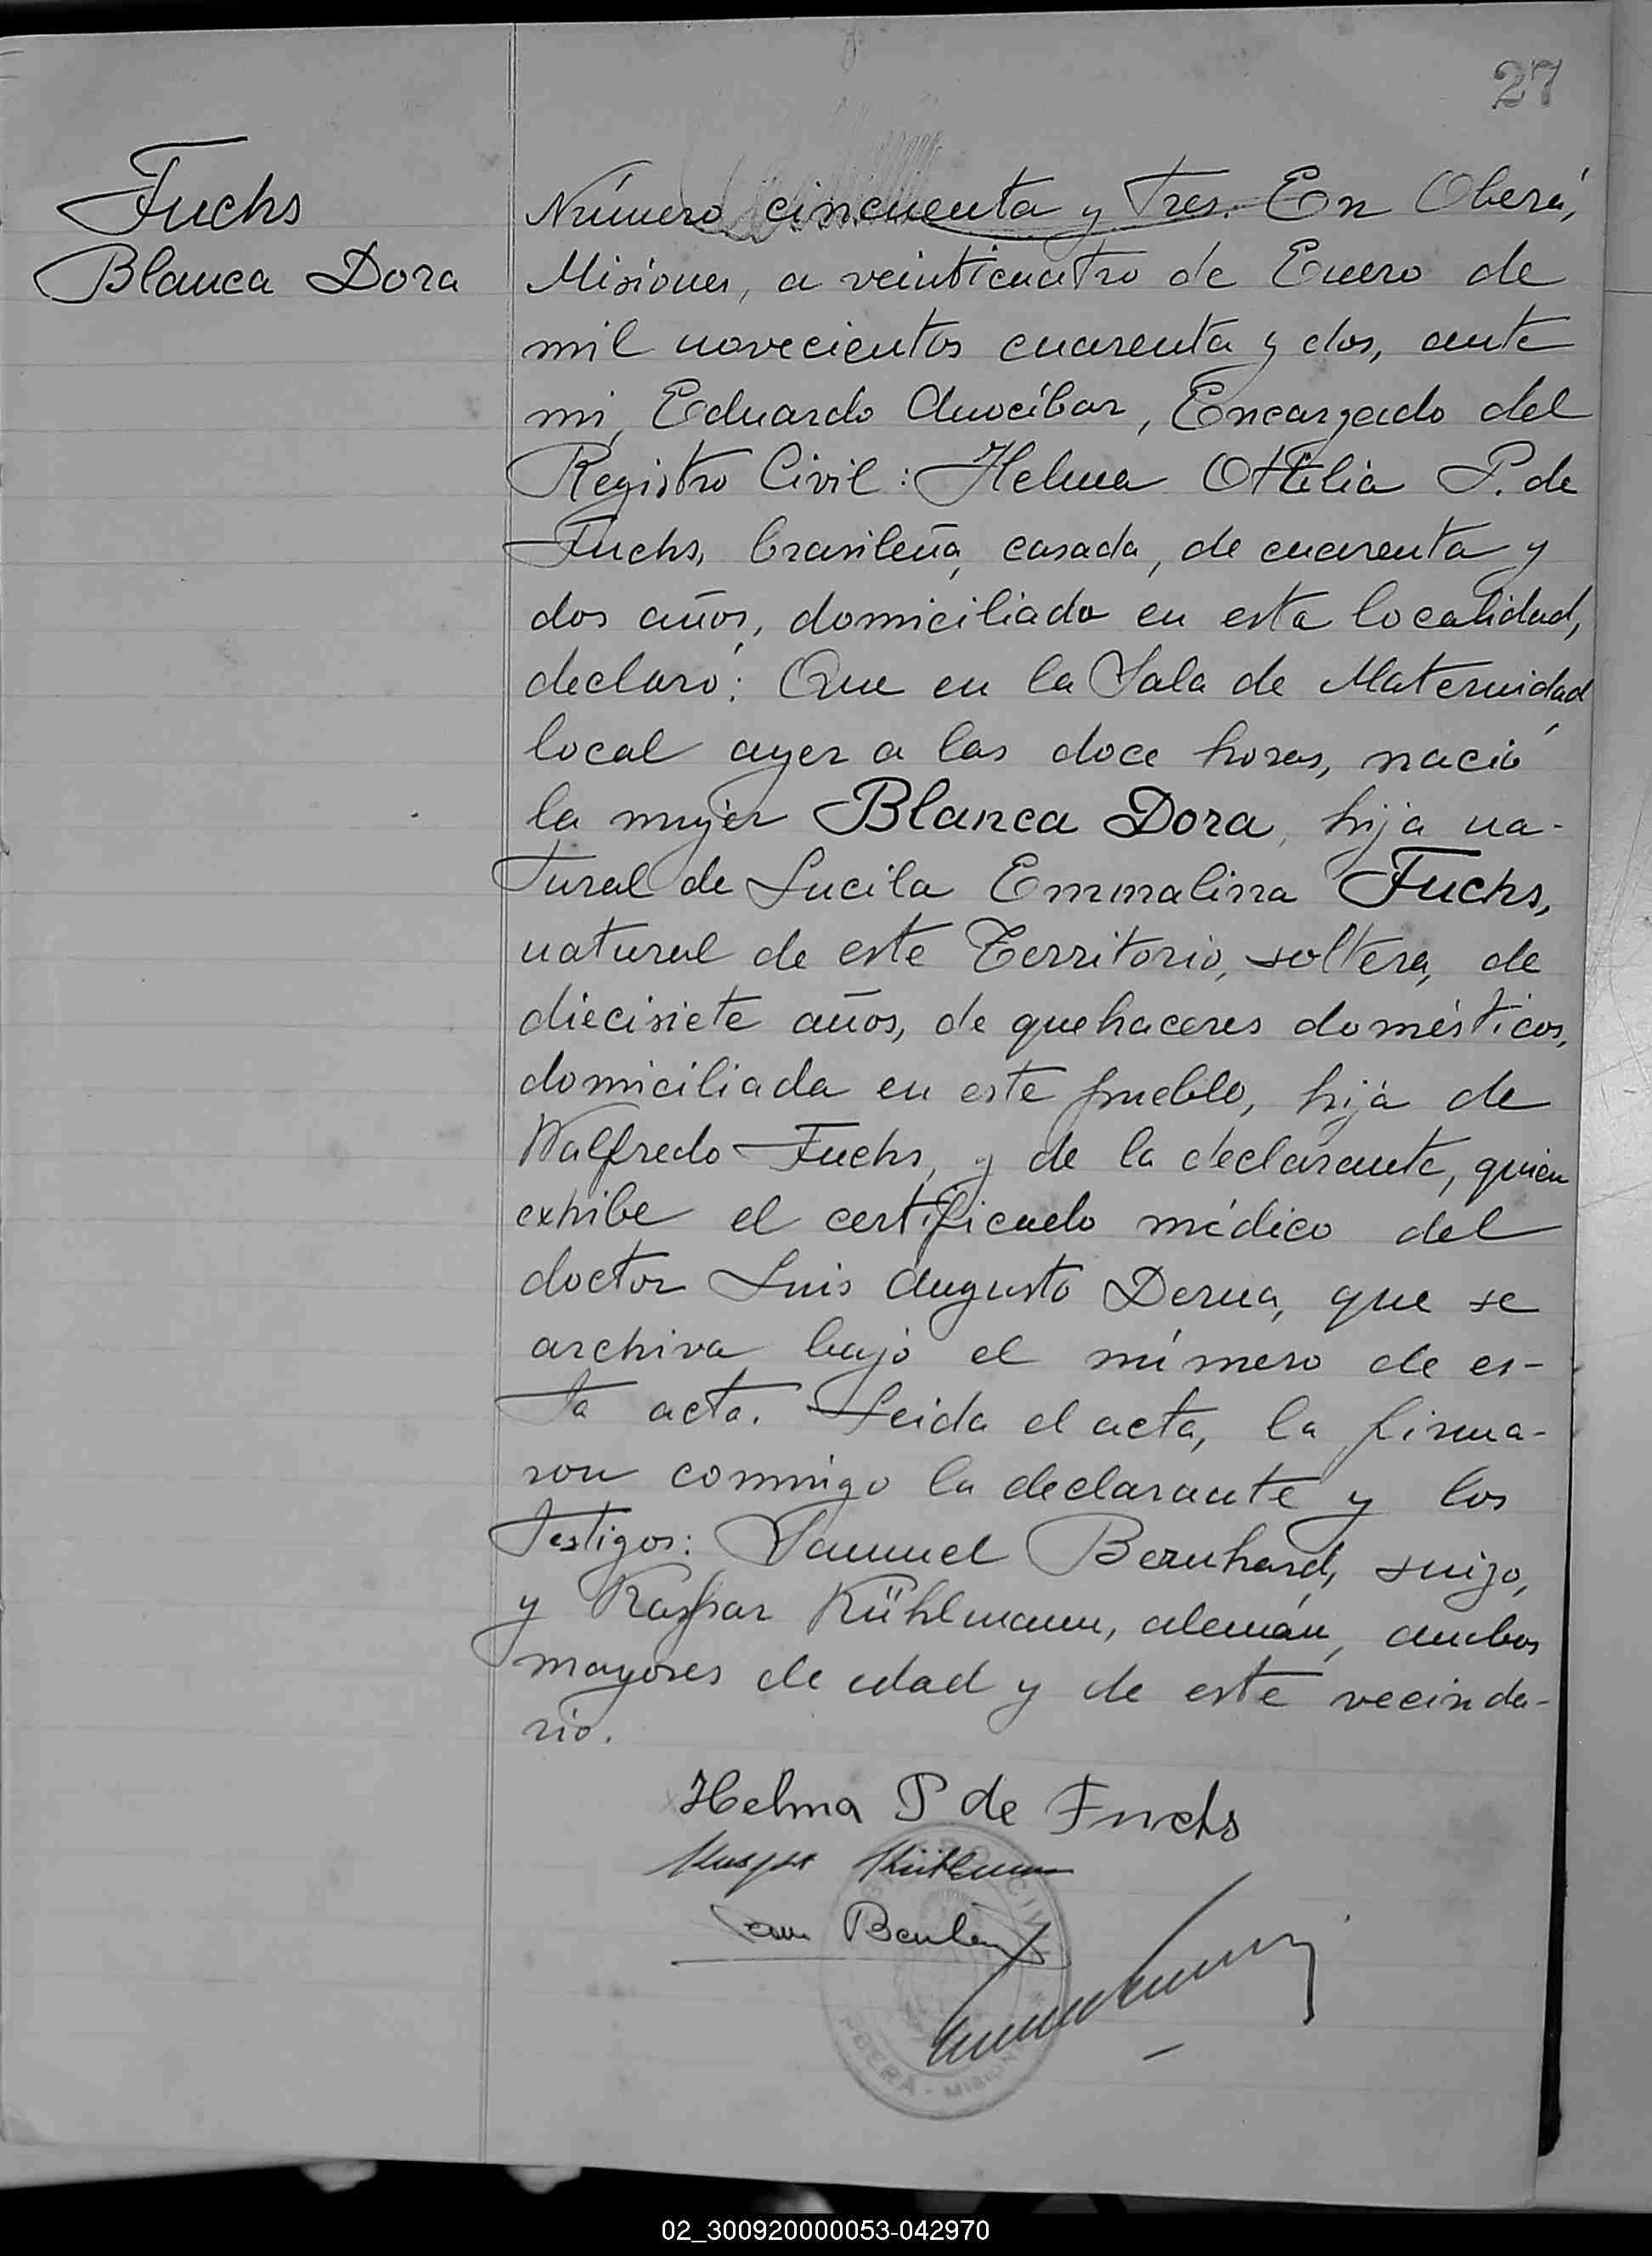 27
Fuchs
Blanca Dora
Número cincuenta y tres. En Oberá,
Misiones, a veinticuatro de Enero de
mil novecientos cuarenta y dos, ante
mi, Eduardo Anocíbar, Encargado del
Registro Civil: Helma Ottilia P. de
Fuchs, brasileña, casada, de cuarenta y
dos años, domiciliada en esta localidad,
declaró: Que en la Sala de Maternidad
local ayer a las doce horas, nació
la mujer Blanca Dora, hija na-
tural de Lucila Emmalina Fuchs,
natural de este Territorio, soltera, de
diecisiete años, de quehaceres domésticos,
domiciliada en este pueblo, hija de
Walfredo Fuchs, y de la declarante, quien
exhibe el certificado médico del
doctor Luis Augusto Derna, que se
archiva bajo el número de es-
ta acta. Leida el acta, la firma-
ron conmigo la declarante y los
testigos: Samuel Bernhard, suizo,
y Kaspar Kühlmann, alemán, ambos
mayores de edad y de este vecinda-
rio.
Helma P de Fuchs
Kaspar Kühlmann
Sam Bernhard
OBERÁ - MISIONES
02_300920000053-042970